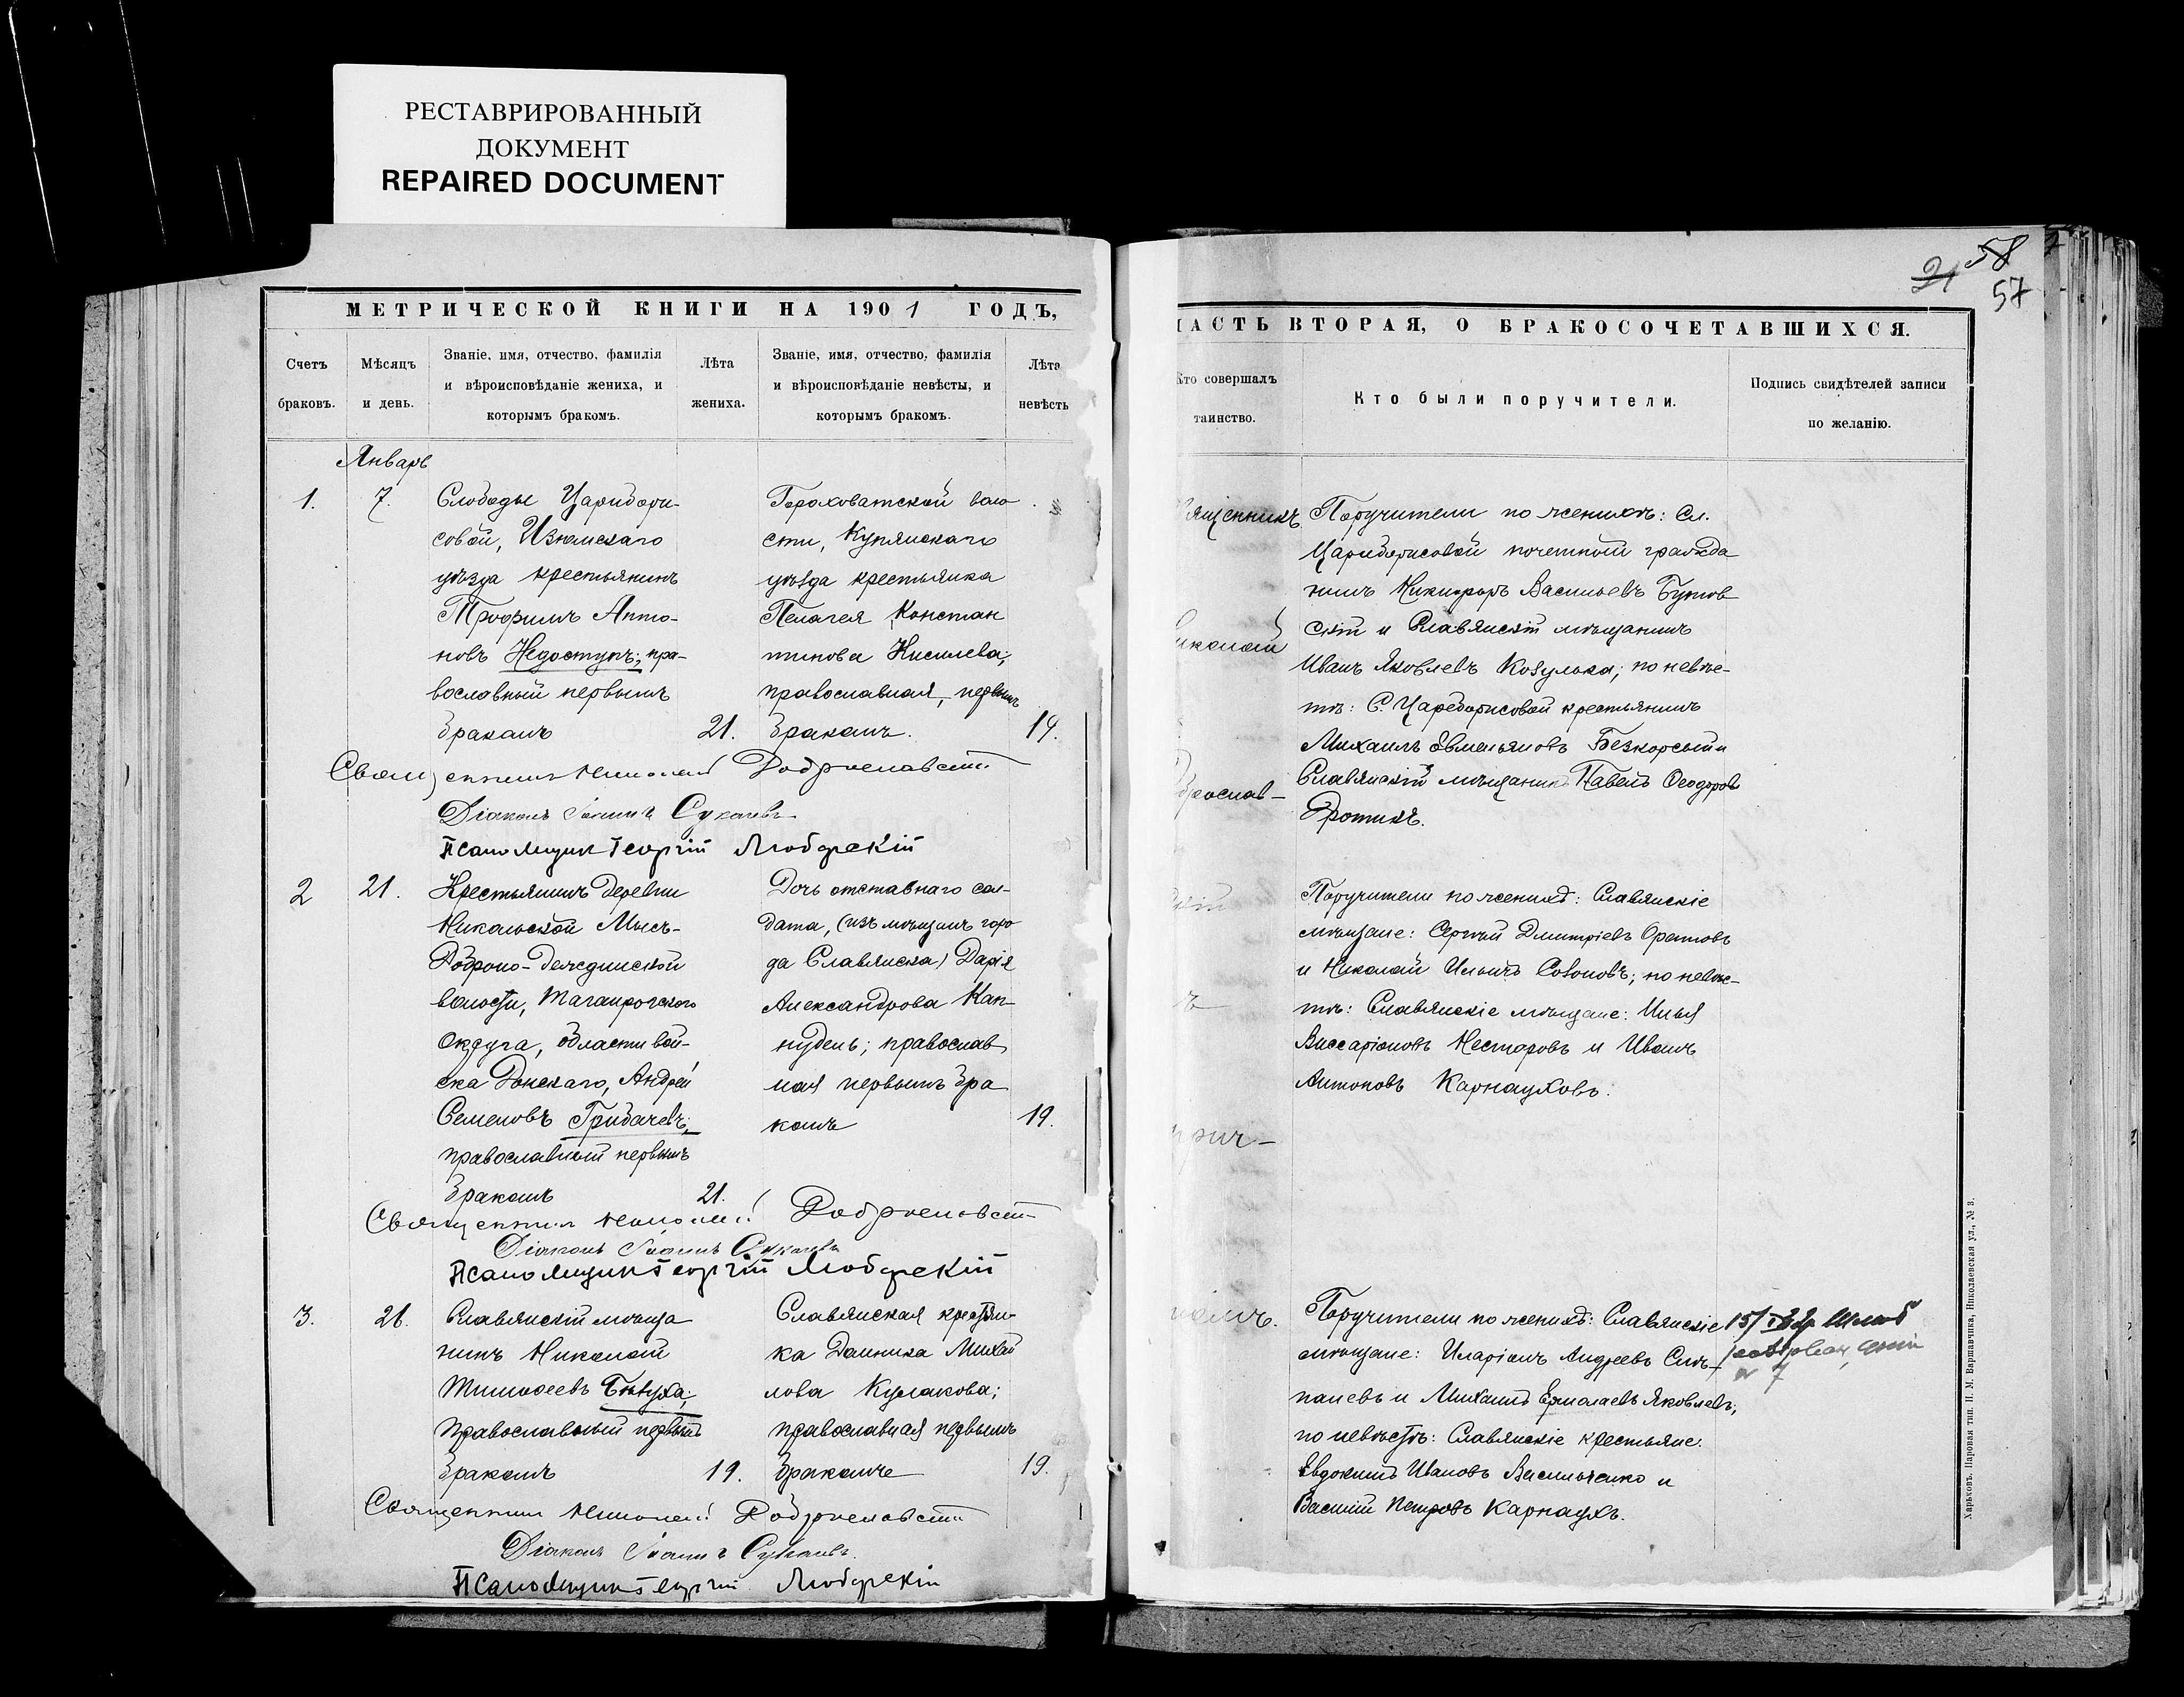 РЕСТАВРИРОВАННЫЙ
ДОКУМЕНТ
REPAIRED DOCUMENT
МЕТРИЧЕСКОЙ КНИГИ НА 1901 ГОДЪ,
Счетъ
браковъ.
Мѣсяцъ
и день.
Званіе, имя, отчество, фамилія
и вѣроисповѣданіе жениха, и
которымъ бракомъ.
Лѣта
жениха.
Званіе, имя, отчество, фамилія
и вѣроисповѣданіе невѣсты, и
которымъ бракомъ.
Лѣта
невѣсть
Январь
1.
7.
Слободы Царибори-
совой, Изюмскаго
уѣзда крестьянинъ
Трофимъ Анто-
новъ Недоступъ; пра-
вославный первымъ
бракомъ
21.
Гороховатской воло
сти, Купянскаго
уѣзда крестьянка
Пелагея Констан
тинова Киселева;
православная, первымъ
бракомъ.
19.
Священникъ Николай Доброславскій
Діаконъ Іоаннъ
Псаломщикъ Георгій Любарскій
2
21.
Крестьянинъ деревни
Никольской Мысъ-
волости, Таганрогскаго
Округа, Области вой-
ска Донскаго, Андрей
Семеновъ Грибачевъ;
православный первымъ
бракомъ
21.
Дочь отставнаго сол-
дата, (изъ мѣщанъ горо
да Славянска) Дарія
Александрова Кап-
нудель; православ
ная первымъ бра
комъ
19.
Священникъ Николай Доброславскій
Діаконъ Іоаннъ
Псаломщикъ Георгій Любарскій
3.
21.
Славянскій мѣща
нинъ Николай
Тимофеевъ
православный первымъ
бракомъ
19.
Славянская крестьян
ка Домника Михай
лова Кулакова;
православная первымъ
бракомъ
19.
Священникъ Николай Доброславскій
Діаконъ Іоаннъ
Псаломщикъ Георгій Любарскій
21 58
57
ЧАСТЬ ВТОРАЯ, О БРАКОСОЧЕТАВШИХСЯ.
Кто совершалъ
таинство.
Кто были поручители.
Подпись свидѣтелей записи
по желанію.
ященникъ
иколай
брослав-
скій
Поручители по женихѣ: Сл.
Цариборисовой почетный гражда
нинъ Никифоръ Васильевъ Бутов
скій и Славянскій мѣщанинъ
Иванъ Яковлевъ Козулька; по невѣс-
тѣ: С. Цареборисовой крестьянинъ
Михаилъ Евмельяновъ
Славянскій мѣщанинъ Павелъ Ѳеодоров
Поручители по женихѣ: Славянскіе
мѣщане: Сергѣй Дмитріевъ
и Николай Ильичъ; по невѣс-
тѣ: Славянскіе мѣщане: Илья
Виссаріоновъ Несторовъ и Иванъ
Антоновъ Карнауховъ.
Поручители по женихѣ: Славянскіе
мѣщане: Иларіонъ Андреевъ Сте-
пановъ и Михаилъ Ермолаевъ Яковлевъ;
по невѣстѣ: Славянскіе крестьяне:
Евдокимъ Ивановъ Васильченко и
Василій Петровъ Карнаухъ.
Харьковъ. Паровая тип. И. М. Варшавчика, Николаевская ул., № 3.